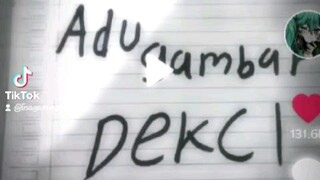 Adu
gambar
DEKCI
TikTok
131.6